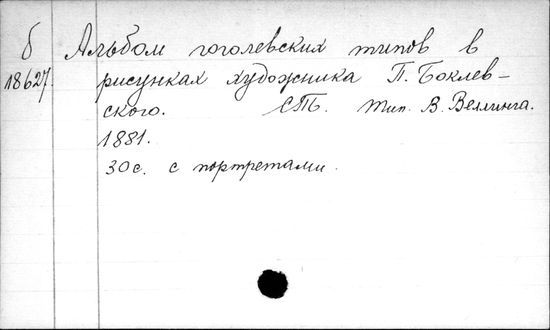 б Альбом гоголевских типов в
18627. рисунках художника П. Боклев-
ского. СПб. Тип. В. Веллинга.
1881.
30 с. с портретами.